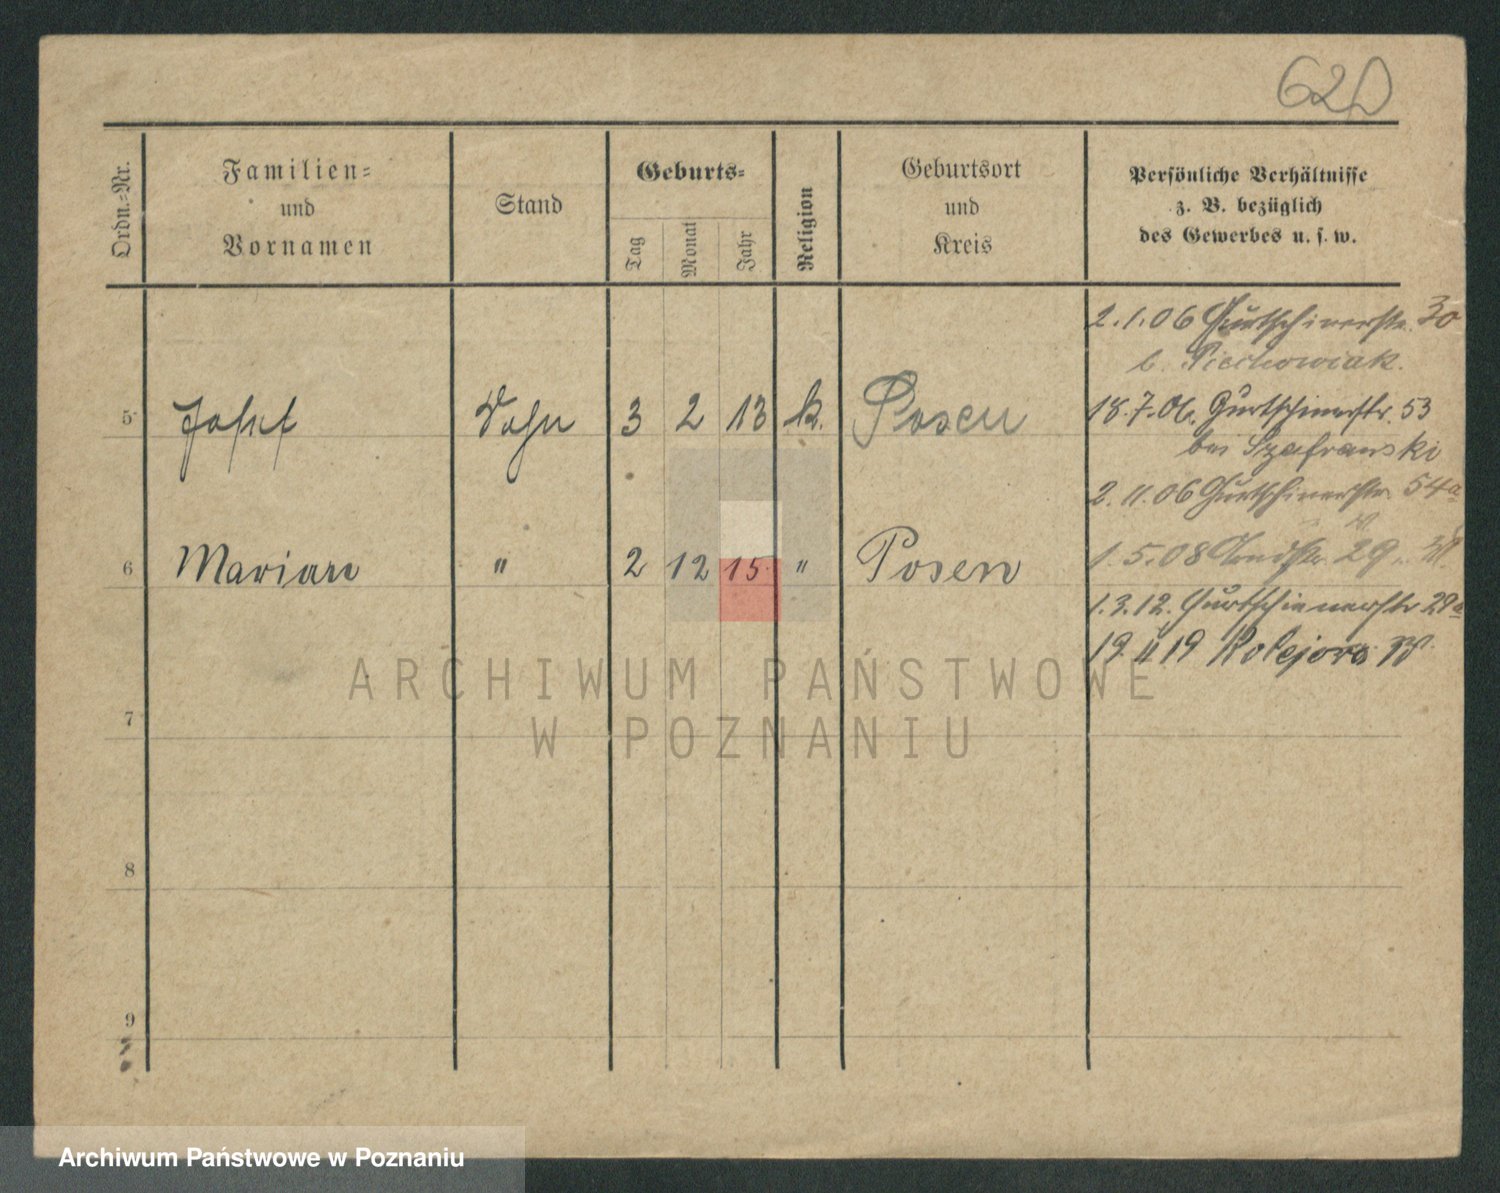 620
Ordn.-Nr.
Familien-
und
Vornamen
Stand
Geburts-
Tag
Monat
Jahr
Religion
Geburtsort
und
Kreis
Persönliche Verhältnisse
z. B. bezüglich
des Gewerbes u. s. w.
2.1.06 Gurtschinerstr. 30
b. Piechowiak.
5 Josef Sohn 3 2 13 k. Posen
18.7.06. Gurtschinerstr. 53
bei Szafranski
2.11.06 Gurtschinerstr. 54a
6 Marian " 2 12 15 " Posen
1.5.08 29
1.3.12. Gurtschinerstr 29a
19 II 19 Kolejowa
7
8
9
ARCHIWUM PAŃSTWOWE
W POZNANIU
Archiwum Państwowe w Poznaniu